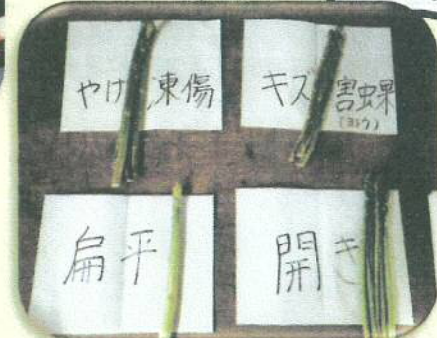 やけ 凍傷
キズ 害虫果
(ヨトウ)
扁平
開き